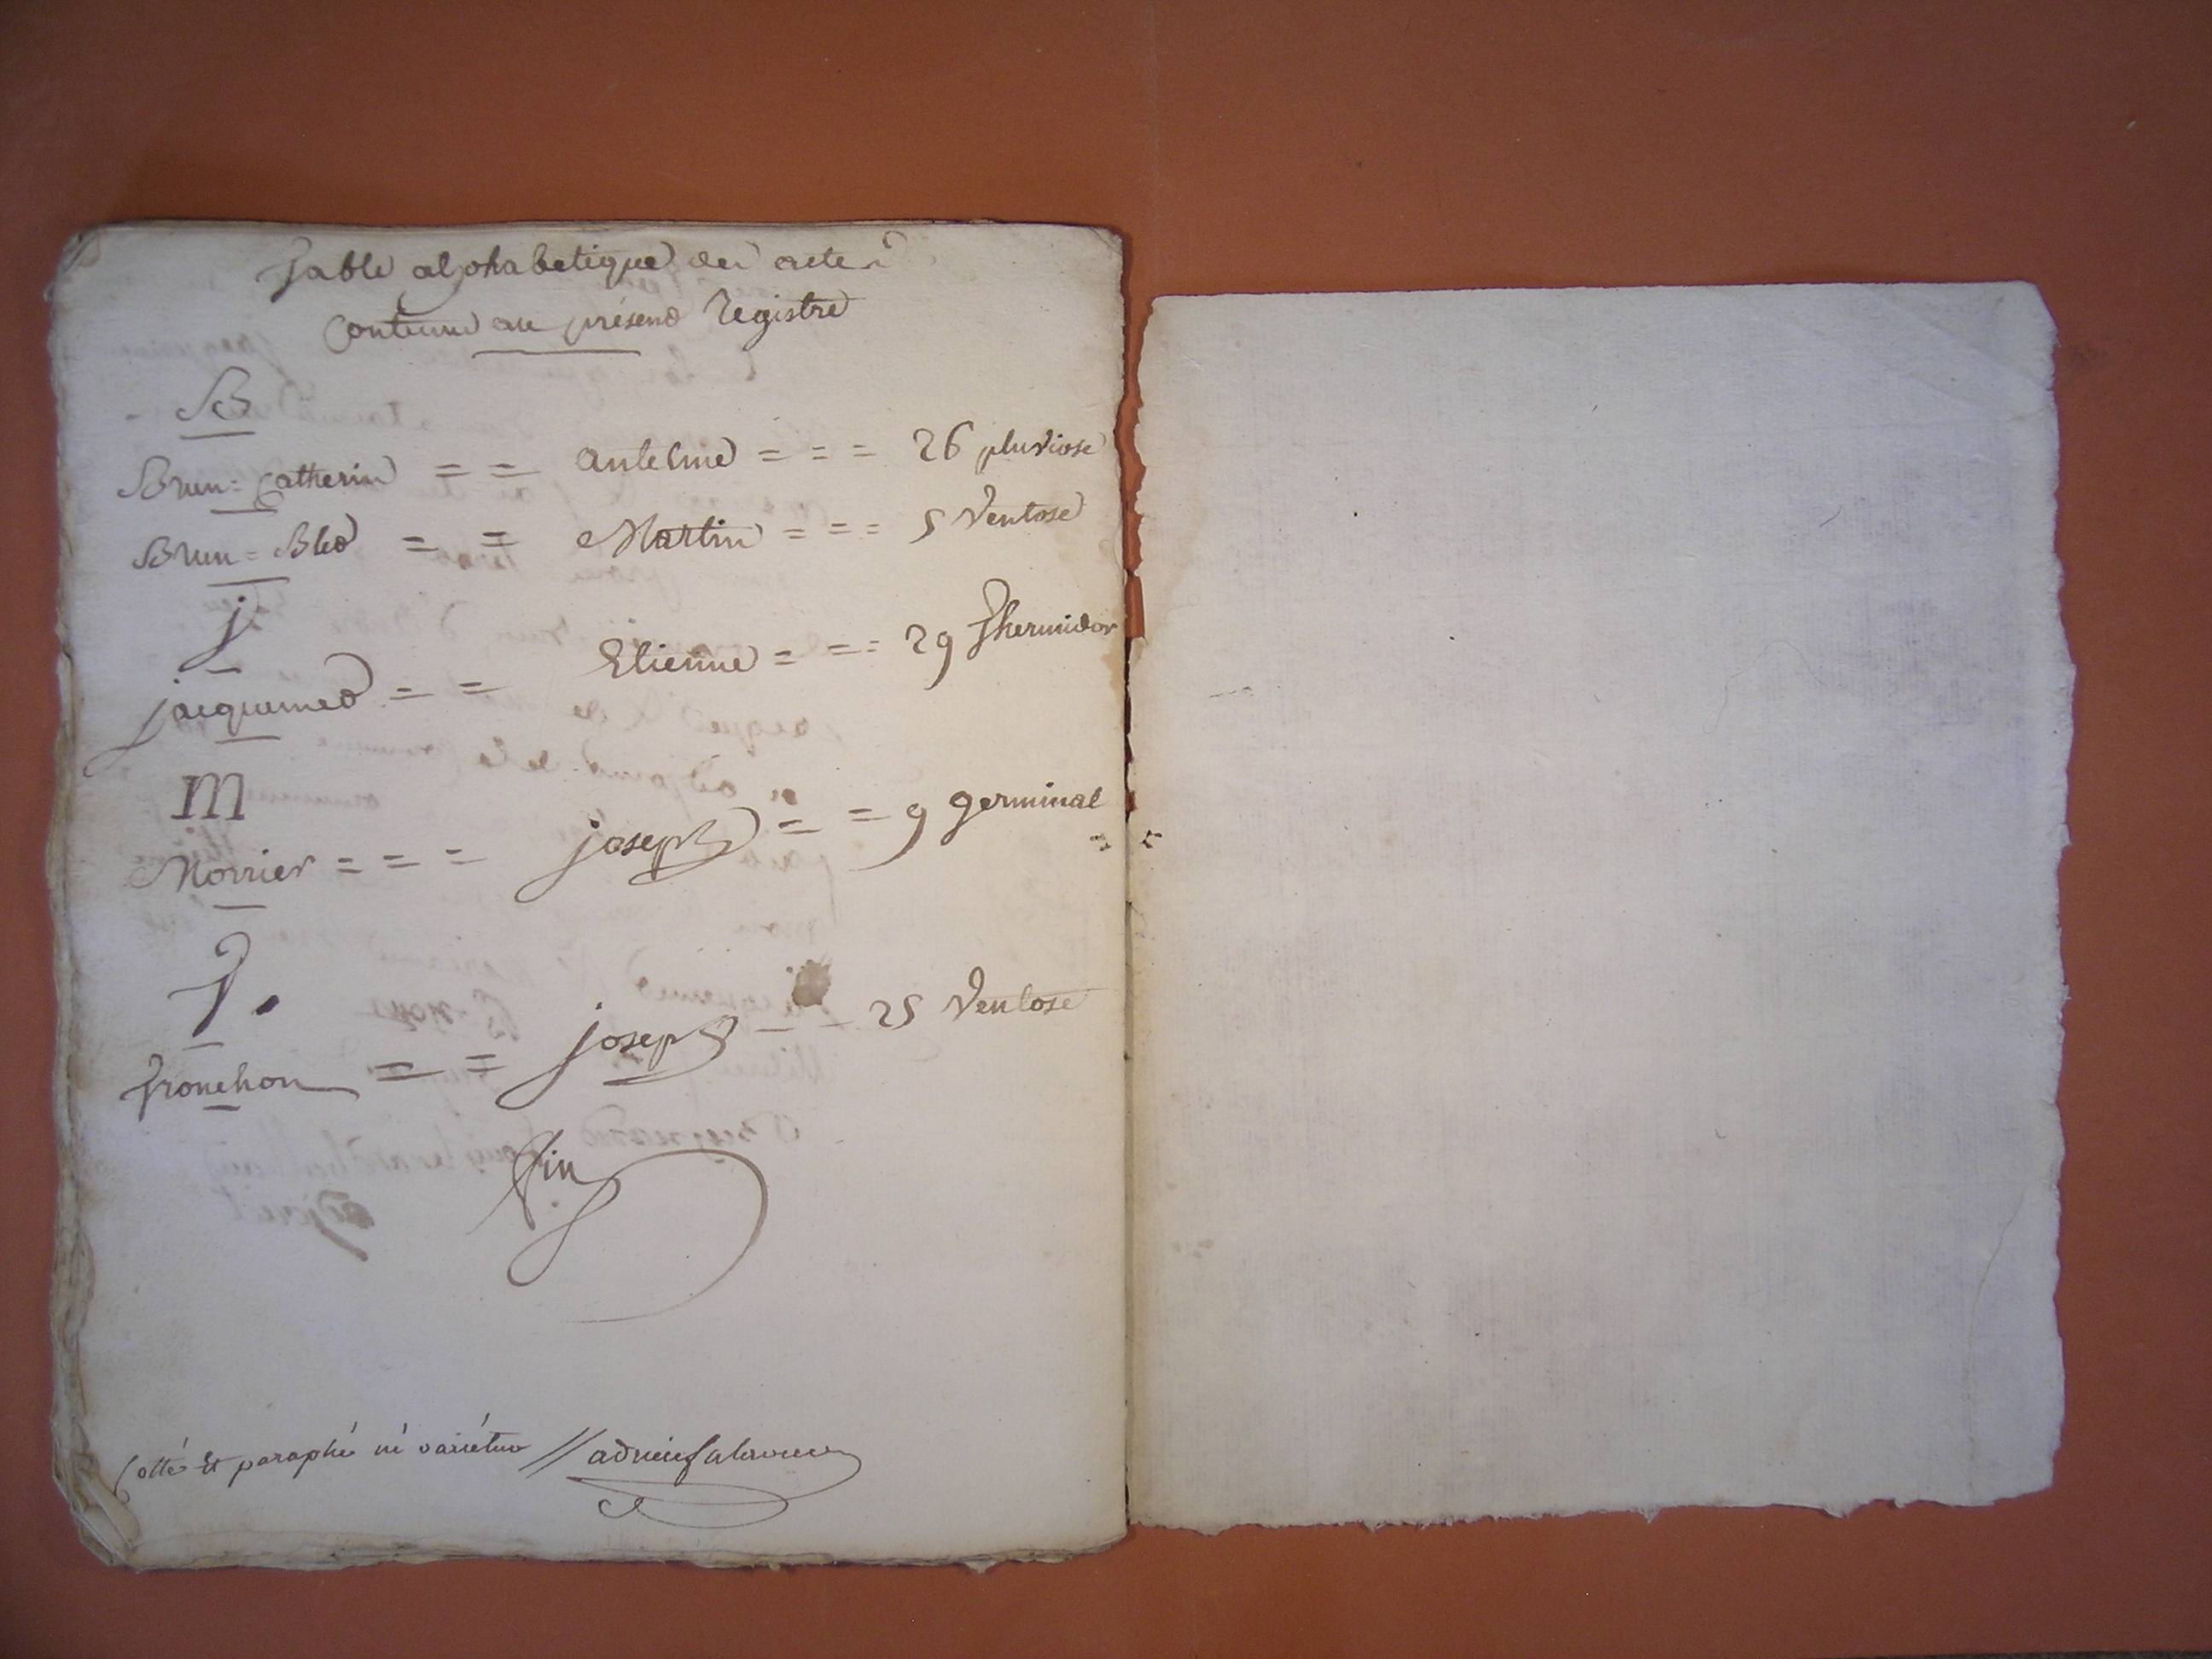 Table alphabetique des actes
Contenu au présent Registre
B
Brun=Catherin = = Antelme = = = 26 pluviose
Brun=Blet = = Martin = = = 5 Ventose
j
jacquemet = = Etienne = = = 29 Thermidor
M
Morrier = = = joseph = = 9 germinal
T.
Tronchon = = joseph = = 25 Ventose
Fin
Cotté Et paraphé né variétur //